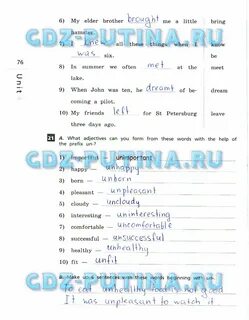 GDZ-PUTINA.RU
6) My elder brother brought me a little bring
hamster.
7) I all these things when I know
was six. be
8) In summer we often met at the meet
lake.
9) When John was ten, he dreamt of be- dream
coming a pilot.
10) My friends left for St Petersburg leave
three days ago.
76
Unit
21 A. What adjectives can you form from these words with the help of
the prefix un-?
1) important — unimportant
2) happy — unhappy
3) born — unborn
4) pleasant — unpleasant
5) cloudy — uncloudy
6) interesting — uninteresting
7) comfortable — uncomfortable
8) successful — unsuccessful
9) healthy — unhealthy
10) fit — unfit
B. Make up 5 sentences with these words beginning with un-.
To eat unhealthy food is not good
It was unpleasant to watch it
GDZ-PUTINA.RU